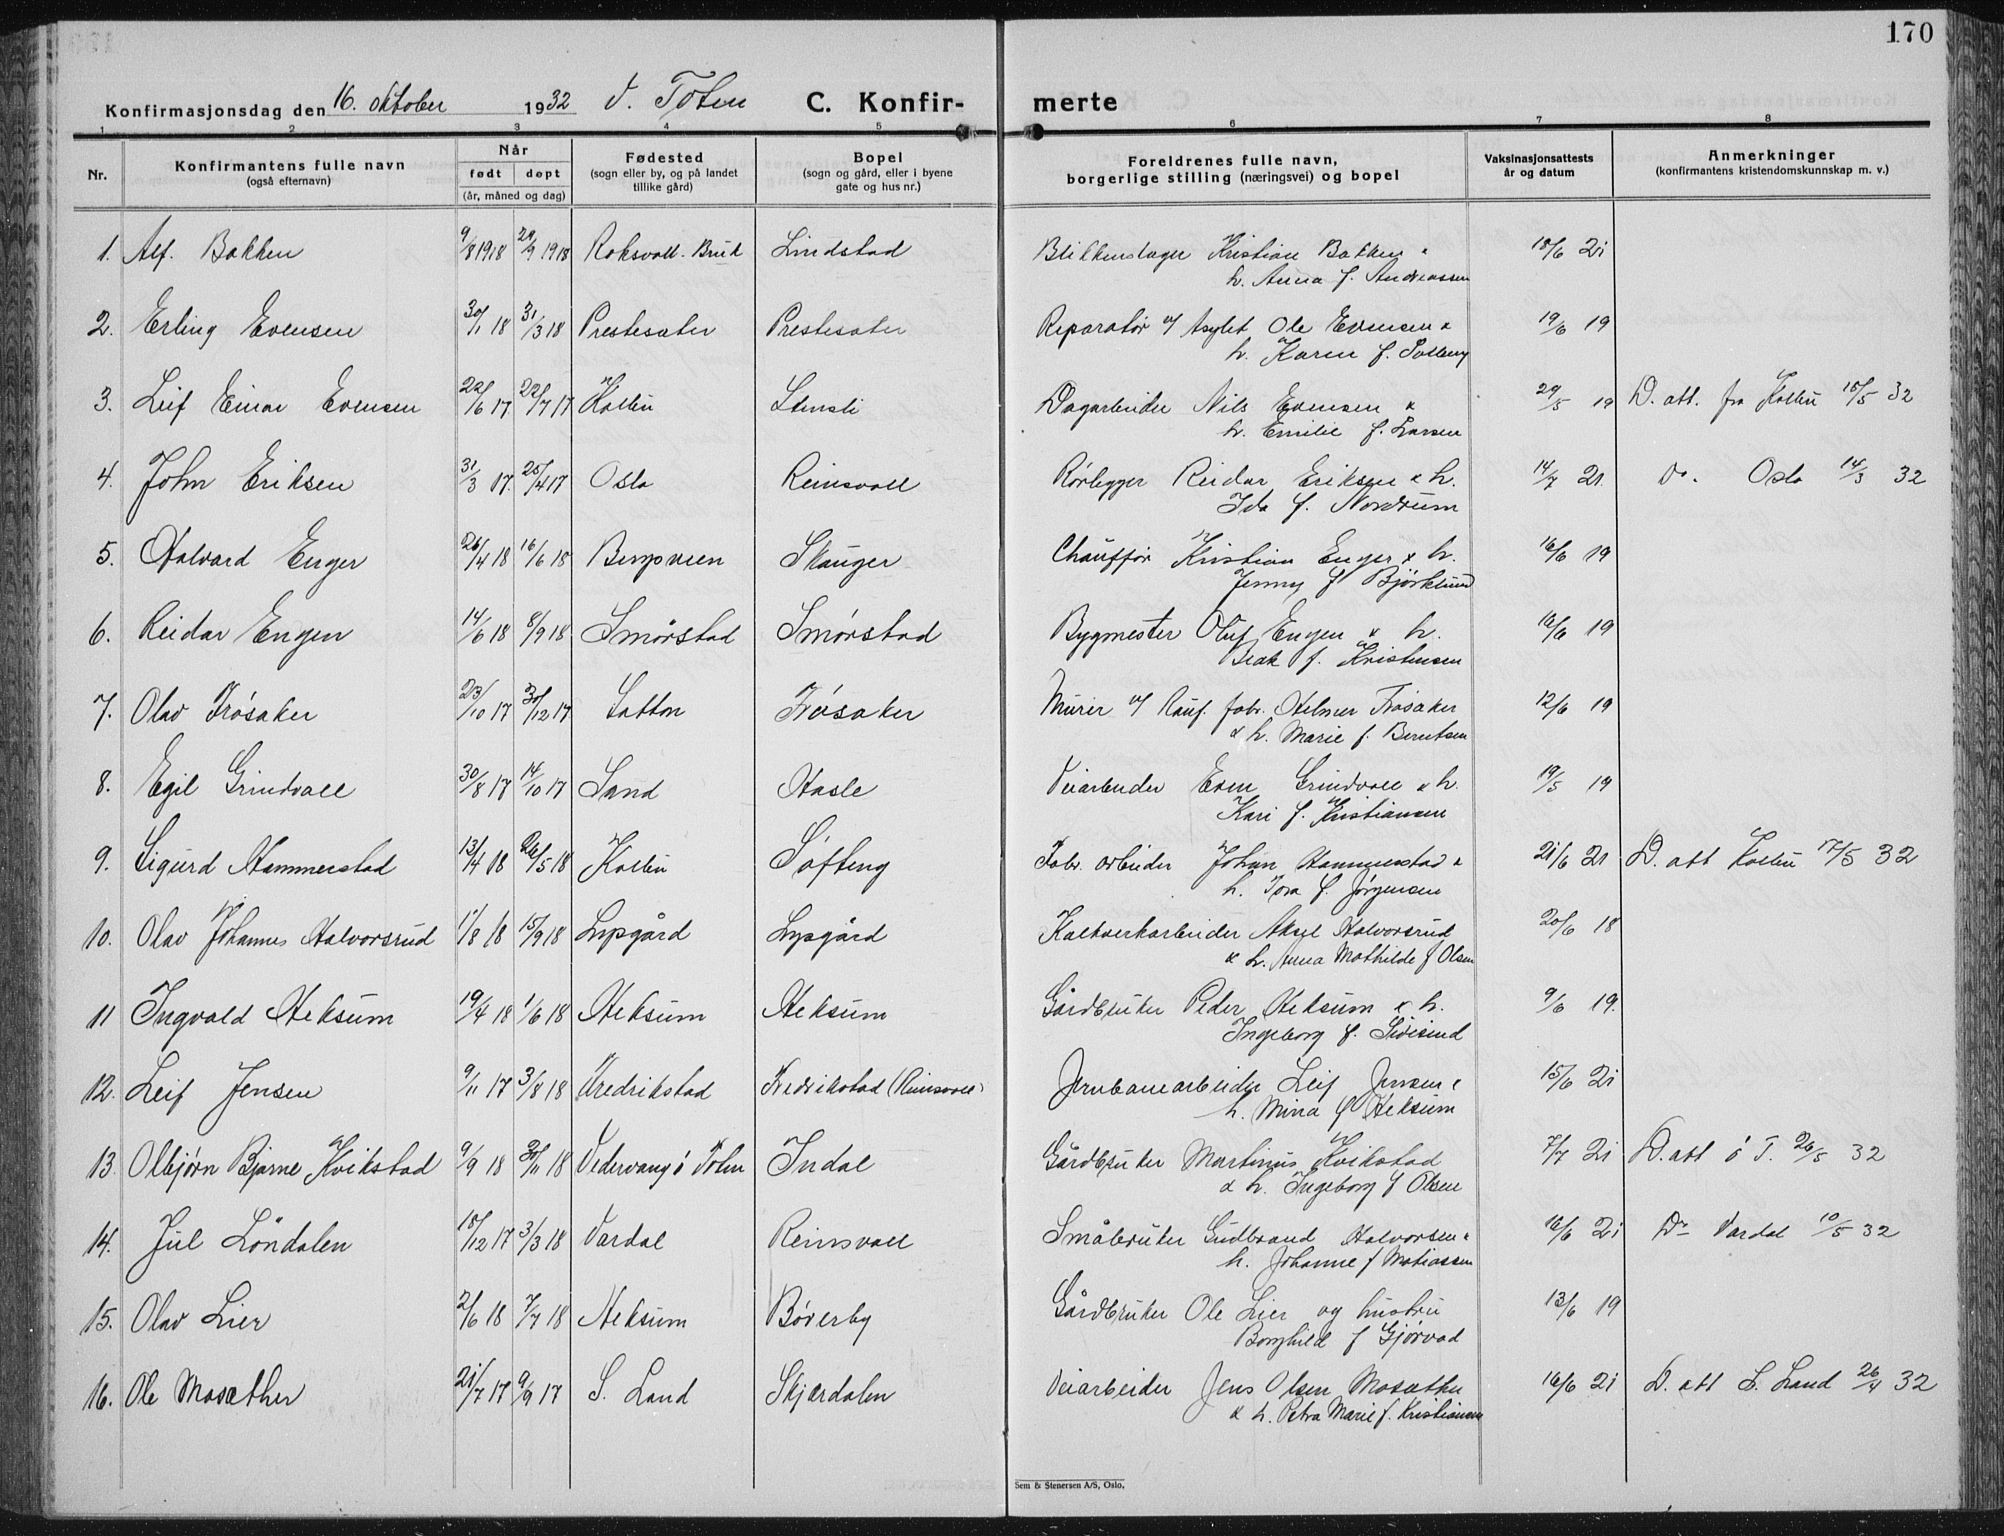 170
Konfirmasjonsdag den 16. oktober 1932 V. Toten C. Konfir- merte
1 2 3 4 5 6 7 8
Nr. Konfirmantens fulle navn (også efternavn) Når født døpt (år, måned og dag) Fødested (sogn eller by, og på landet tillike gård) Bopel (sogn og gård, eller i byene gate og hus nr.) Foreldrenes fulle navn, borgerlige stilling (næringsvei) og bopel Vaksinasjonsattests år og datum Anmerkninger (konfirmantens kristendomskunnskap m. v.)
1. Alf. Bakken 9/8 1918 29/9 1918 Roksvoll. Bruk Lindstad Blikkenslager Kristian Bakken &
h. Anna f. Andreassen 18/6 21
2. Erling Evensen 30/1 18 31/3 18 Prestesæter Prestesæter Reparatør v/ Asylet Ole Evensen &
h. Karen f. Solberg 19/6 19
3. Leif Einar Evensen 22/6 17 22/7 17 Kolbu Stensli Dagarbeider Nils Evensen & 29/5 19 D. att. fra Kolbu 18/5 32
h. Emilie f. Larsen
4. John Eriksen 31/3 17. 25/4 17 Oslo Reinsvoll Rørlegger Reidar Eriksen & h. 14/7 21. Do. Oslo 14/3 32
Ida f. Nordrum
5. Halvard Enger 26/4 18 16/6 18 Skauger Chauffør Kristian Enger & h. 16/6 19
Jenny f. Bjørklund
6. Reidar Engen 14/6 18 8/9 18. Smørstad Smørstad Bygmester Oluf Engen & h. 16/6 19
f. Kristensen
7. Olav Frøsaker 23/10 17 30/12 17 Frøsaker Murer v/ Rauf. fabr. Helmer Frøsaker 12/6 19
& h. Marie f. Berntsen
8. Egil Grindvoll 30/8 17 14/10 17 Sand Hasle Veiarbeider Even Grindvoll & h. 19/5 19
Kari f. Kristiansen
9. Sigurd Hammerstad 13/4 18 26/5 18 Kolbu Søfteng Fabr. arbeider Johan Hammerstad & 21/6 21 D. att Kolbu 17/5 32
h. Tora f. Jørgensen
10. Olav Johannes Halvorsrud 1/8 18 15/9 18 Lysgård Lysgård Kalkverkarbeider Aksel Halvorsrud 20/6 18
& h. Anna Mathilde f Olsen
11 Ingvald Heksum 19/4 18 1/6 18 Heksum Heksum Gårdbruker Peder Heksum & h. 9/6 19.
Ingeborg f.
12. Leif Jensen 9/11 17 3/8 18 Fredrikstad Fredrikstad (Reinsvoll) Jernbanearbeider Leif Jensen & 15/6 21
h. Mina f Heksum
13. Olbjørn Bjarne Kvikstad 9/9 18 30/11 18 Vedervang ø Toten Indal Gårdbruker Martinus Kvikstad 7/7 21 D. att ø T. 26/5 32
& h. Ingeborg f Olsen
14. Jul Løndalen 18/12 17 3/3 18 Vardal Reinsvoll Småbruker Gudbrand Halvorsen & 16/6 21 Do Vardal 10/5 32
h. Johanne f Matiassen
15. Olav Lier 2/6 18 7/7 18 Heksum Bøverby Gårdbruker Ole Lier og hustru 13/6 19
Borghild f Gjørvad
16. Ole Mosæther 21/7 17 9/9 17 S. Land Skjærdalen Veiarbeider Jens Olsen Mosæther 16/6 21 D. att S. Land 26/4 32
& h. Petra Marie f. Kristiansen
Sem & Stenersen A/S, Oslo.